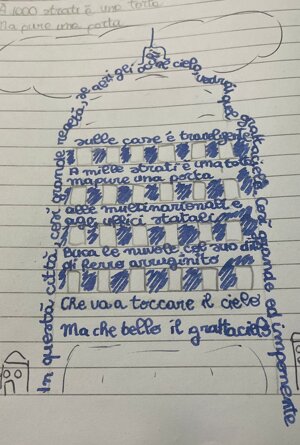 A 1000 strati è una torta
Ma pure una porta
In questa città, così grande neonata, se apri gli occhi nel cielo vedrai quel grattacielo Così grande ed imponente
sulle case è travolgente
A mille strati è una torta
ma pure una porta
alle multinazionali e
agli uffici statali
Buca le nuvole col suo dito
di ferro arrugginito
Che va a toccare il cielo
Ma che bello il grattacielo